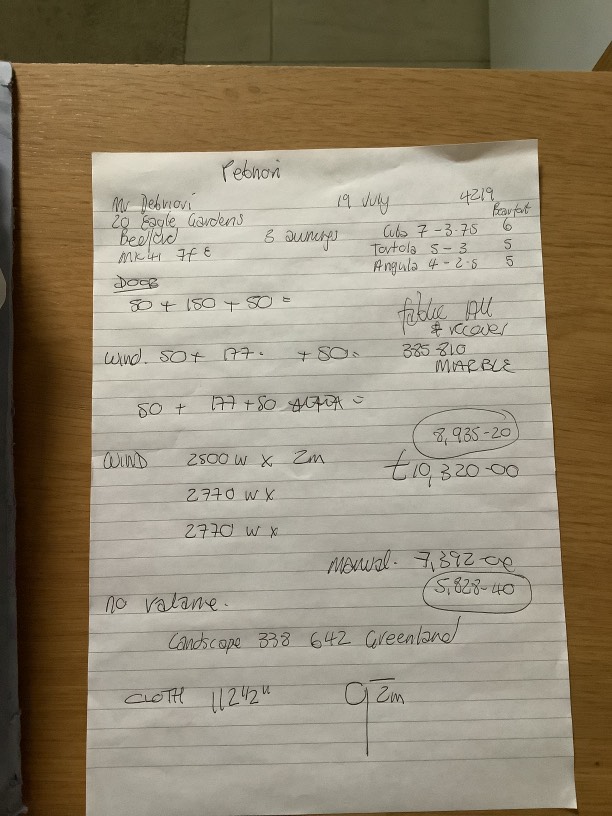 Pebnori
Mr Debnori 19 July 4219
20 Eagle Gardens Beaufort
Bedford 3 awnings Cuba 7 - 3.75 6
MK41 7FE Tortola 5 - 3 5
Angula 4 - 2.5 5
DOOR
50 + 150 + 50 =
fabric All
& recover
Wind. 50 + 177. + 50. 385 810
MARBLE
50 + 177 + 50 =
8,935-20
WIND 2500 W X 2m £10,320-00
2770 W X
2770 W X
Manual. 7,392-00
5,828-40
no valance.
Landscope 338 642 Greenland
CLOTH 112 1/2" 2m